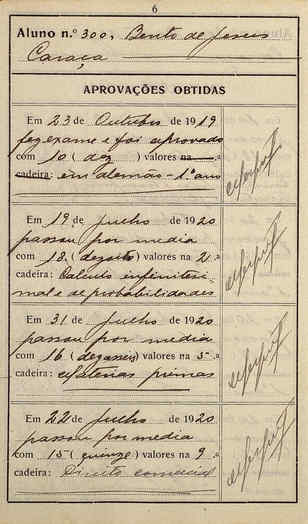 6
Aluno n.º 300, Bento de Jesus
Caraça
APROVAÇÕES OBTIDAS
Em 23 de Outubro de 1919
fez exame e foi aprovado
com 10 (dez) valores na
cadeira: em alemão - 1º ano
Em 19 de Julho de 1920
passou por media
com 18 (dezoito) valores na 2ª
cadeira: Calculo infinitesi-
mal e de probabilidades
Em 31 de Julho de 1920
passou por media
com 16 (dezasseis) valores na 5ª
cadeira: Materias primas
Em 22 de Julho de 1920
passou por media
com 15 (quinze) valores na 9ª
cadeira: Direito comercial